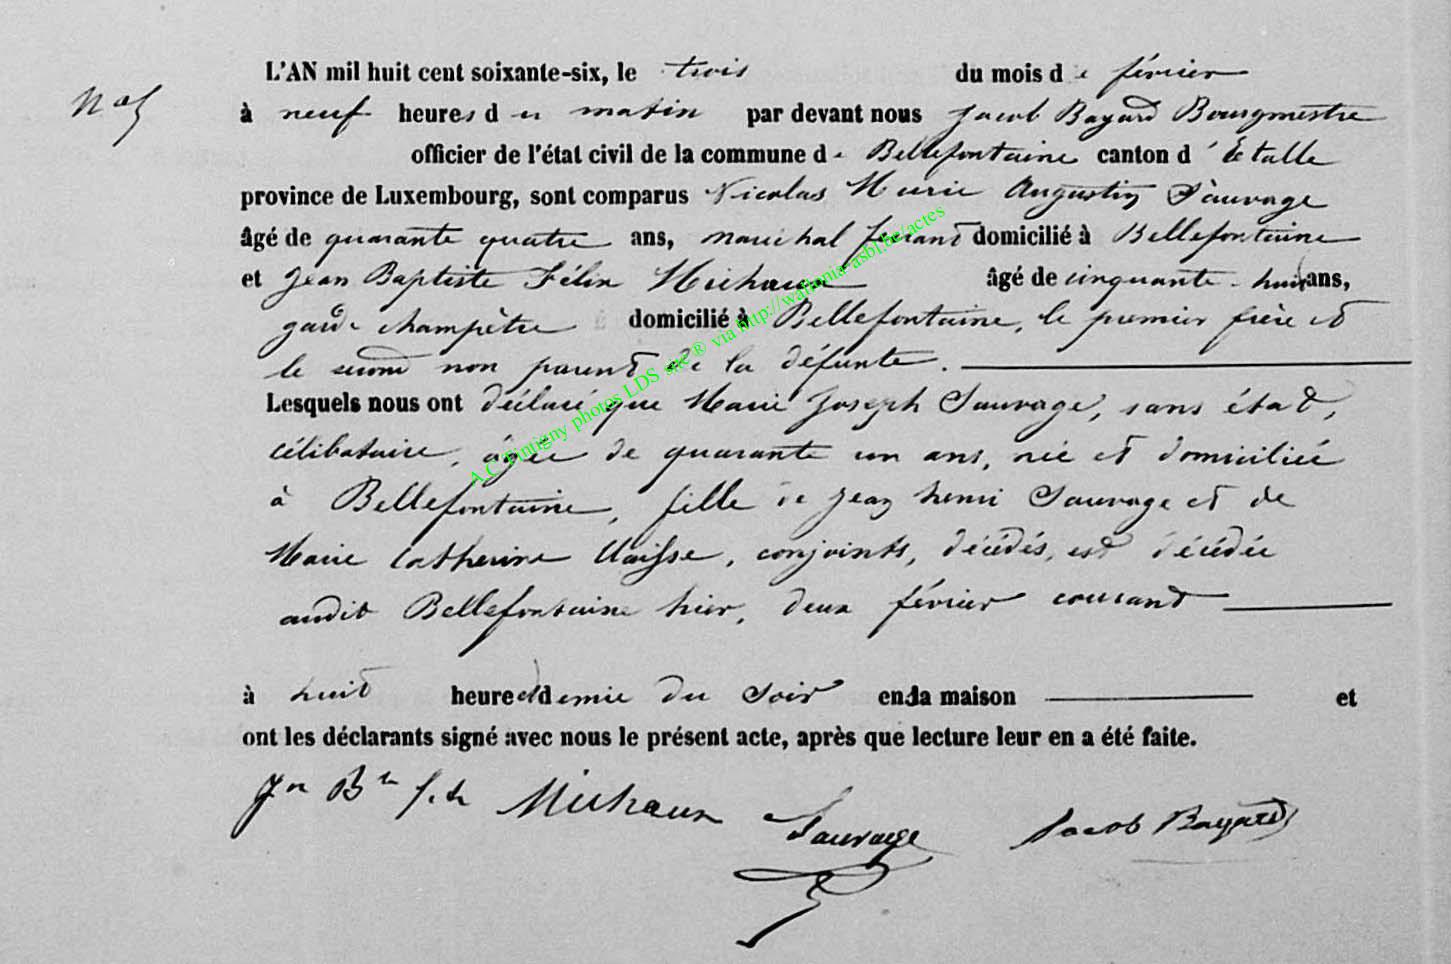 L'AN mil huit cent soixante-six, le trois du mois de février
N° 5
à neuf heures du matin par devant nous Jacob Bayard Bourgmestre
officier de l'état civil de la commune de Bellefontaine canton d'Etalle
province de Luxembourg, sont comparus Nicolas Marie Augustin Sauvage
âgé de quarante quatre ans, maréchal ferrant domicilié à Bellefontaine
et Jean Baptiste Félix Michaux âgé de cinquante-huit ans,
garde champètre domicilié à Bellefontaine, le premier frère et
le second non parent de la défunte.
Lesquels nous ont déclaré que Marie Joseph Sauvage, sans état,
célibataire, âgée de quarante un ans, née et domiciliée
à Bellefontaine, fille de Jean henri Sauvage et de
Marie Catherine Claisse, conjoints, décédés, est décédée
audit Bellefontaine hier, deux février courant
à huit heure et demie du soir en sa maison et
ont les déclarants signé avec nous le présent acte, après que lecture leur en a été faite.
Jn Bte Michaux Sauvage Jacob Bayard
A.C. Tintigny photos LDS site® via http://wallonia-asbl.be/actes